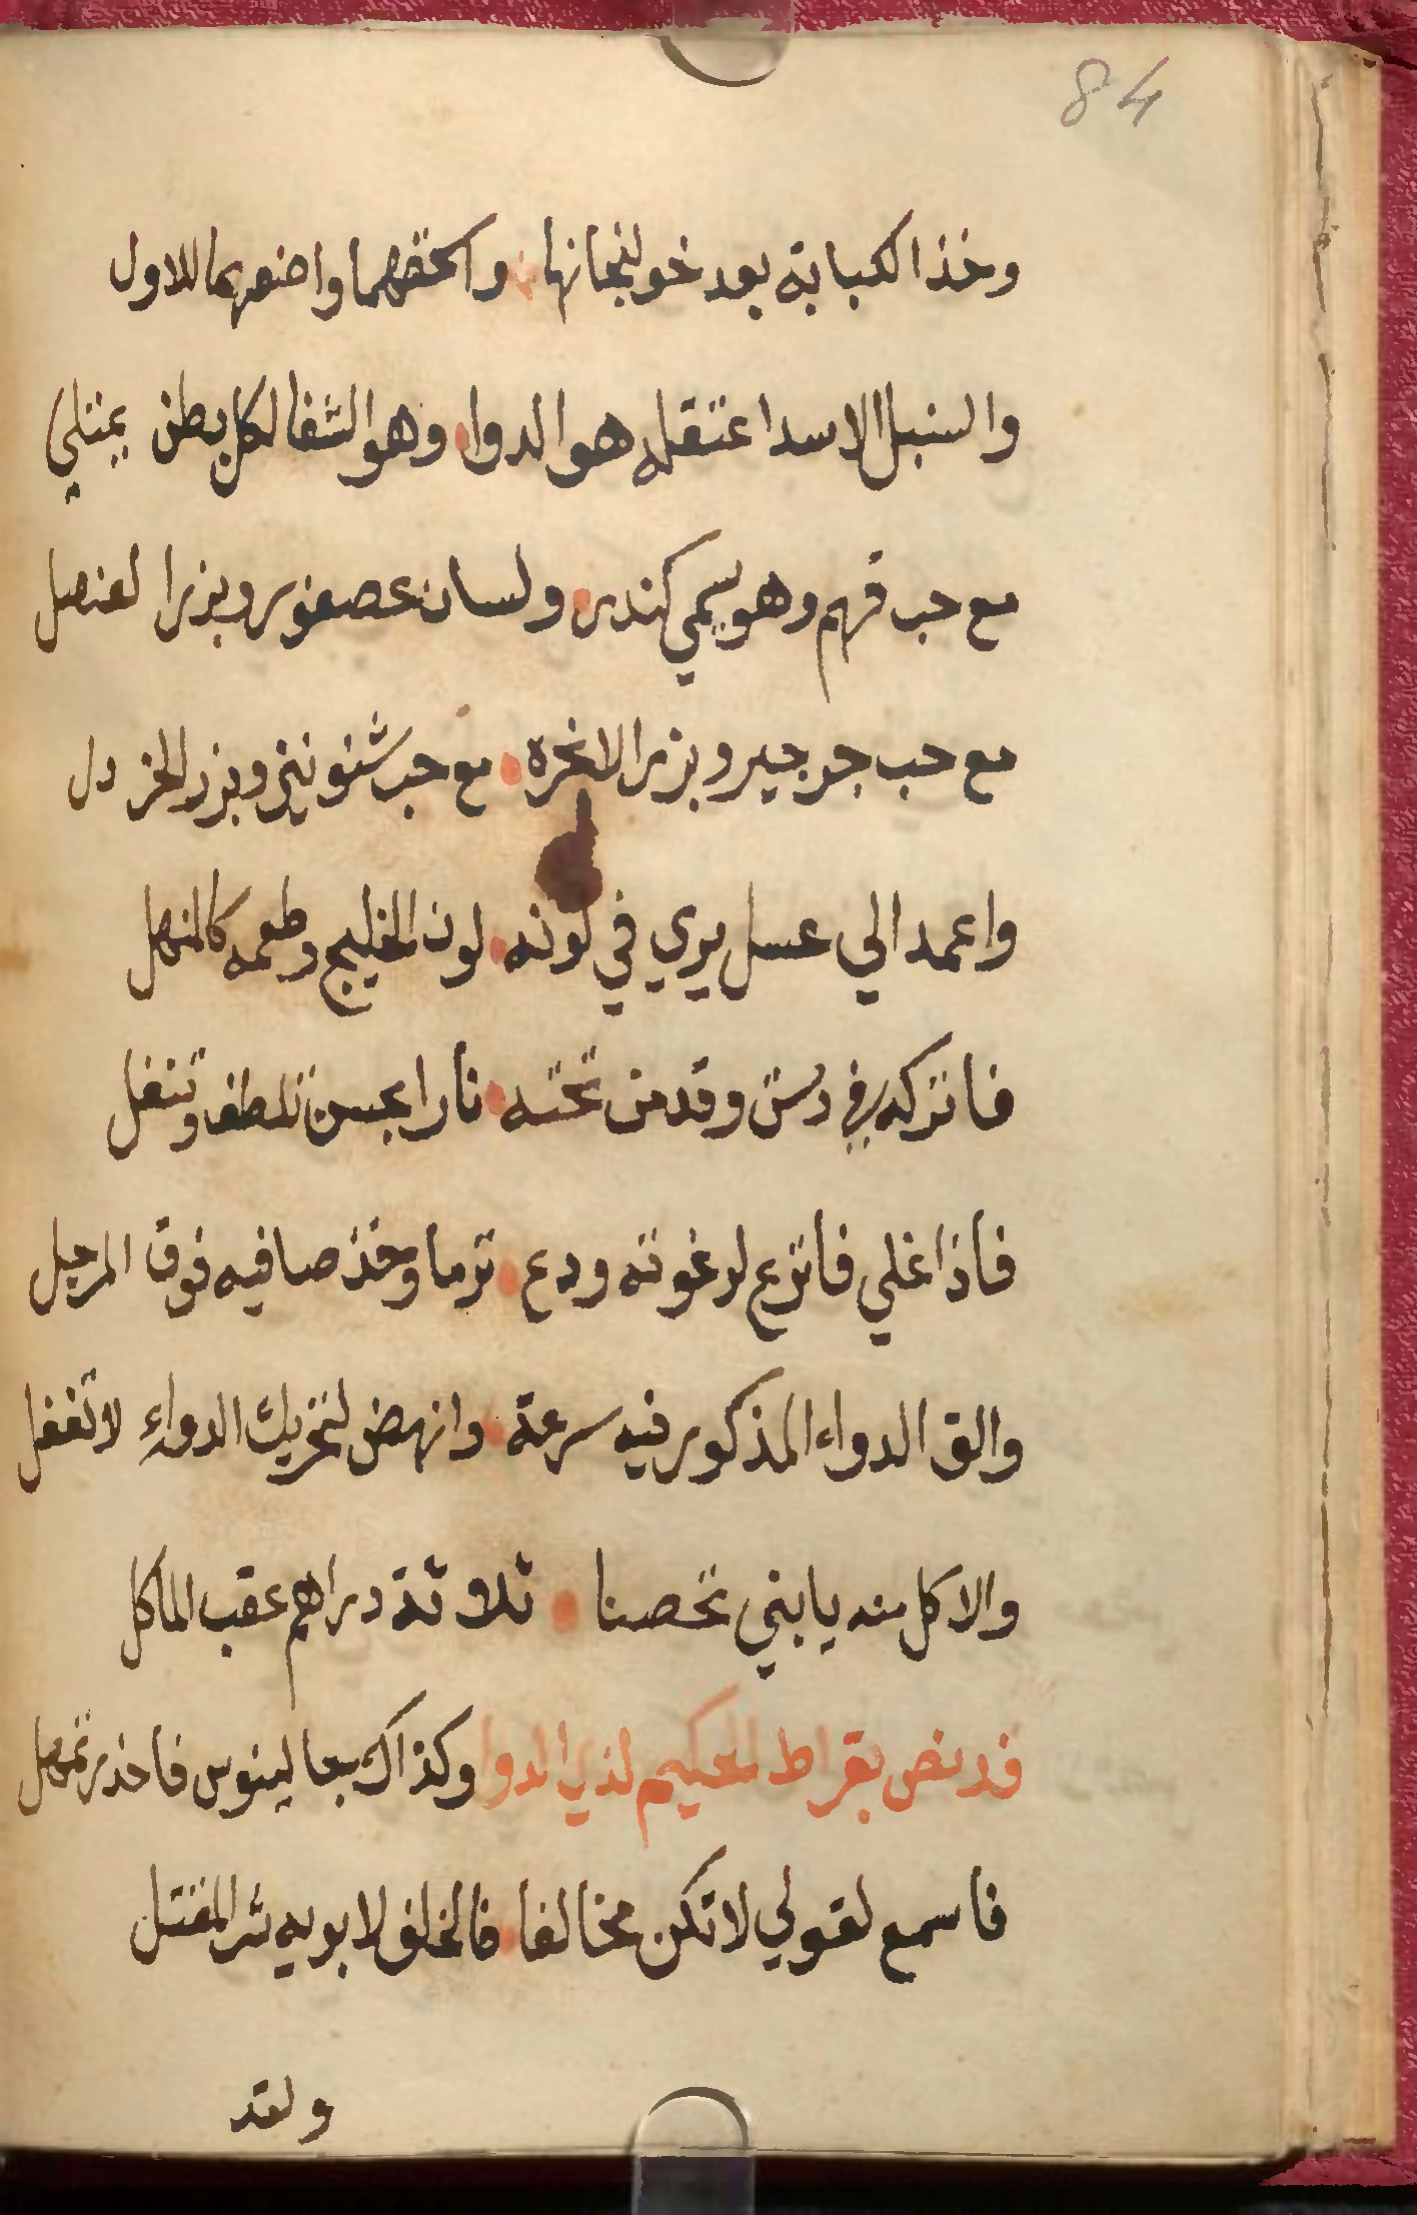 84
وخذ الكبابة بعد خولنجانها واسحقهما واضعهما للاول
والسنبل الاسد اعتقله هو الدوا وهو الشفا لكل بطن يمتلي
مع حب فهم وهو يسمي كندر ولسان عصفور وبزر العنصل
مع حب جرجير وبزر الانخره مع حب شنونيز وبزر الخردل
واعمد الي عسل يري في لونه لون الخليج وطعمه كالمنهل
فاتركه في دست وقد من تحته نارا بحسن تلطف وتنفل
فاذا غلي فانزع لرغوته ودع ترما وخذ صافيه فوق المرجل
والق الدواء المذكور فيه سرعة وانهض لتحريك الدواء لا تغفل
والاكل منه يا بني تحصنا ثلاثة دراهم عقب الماكل
قد نص بقراط الحكيم لذي الدوا وكذاك جالينوس فاحذر تمهل
فاسمع لقولي لا تكن مخالفا فالخلف لابويه شر المفتل
ولقد